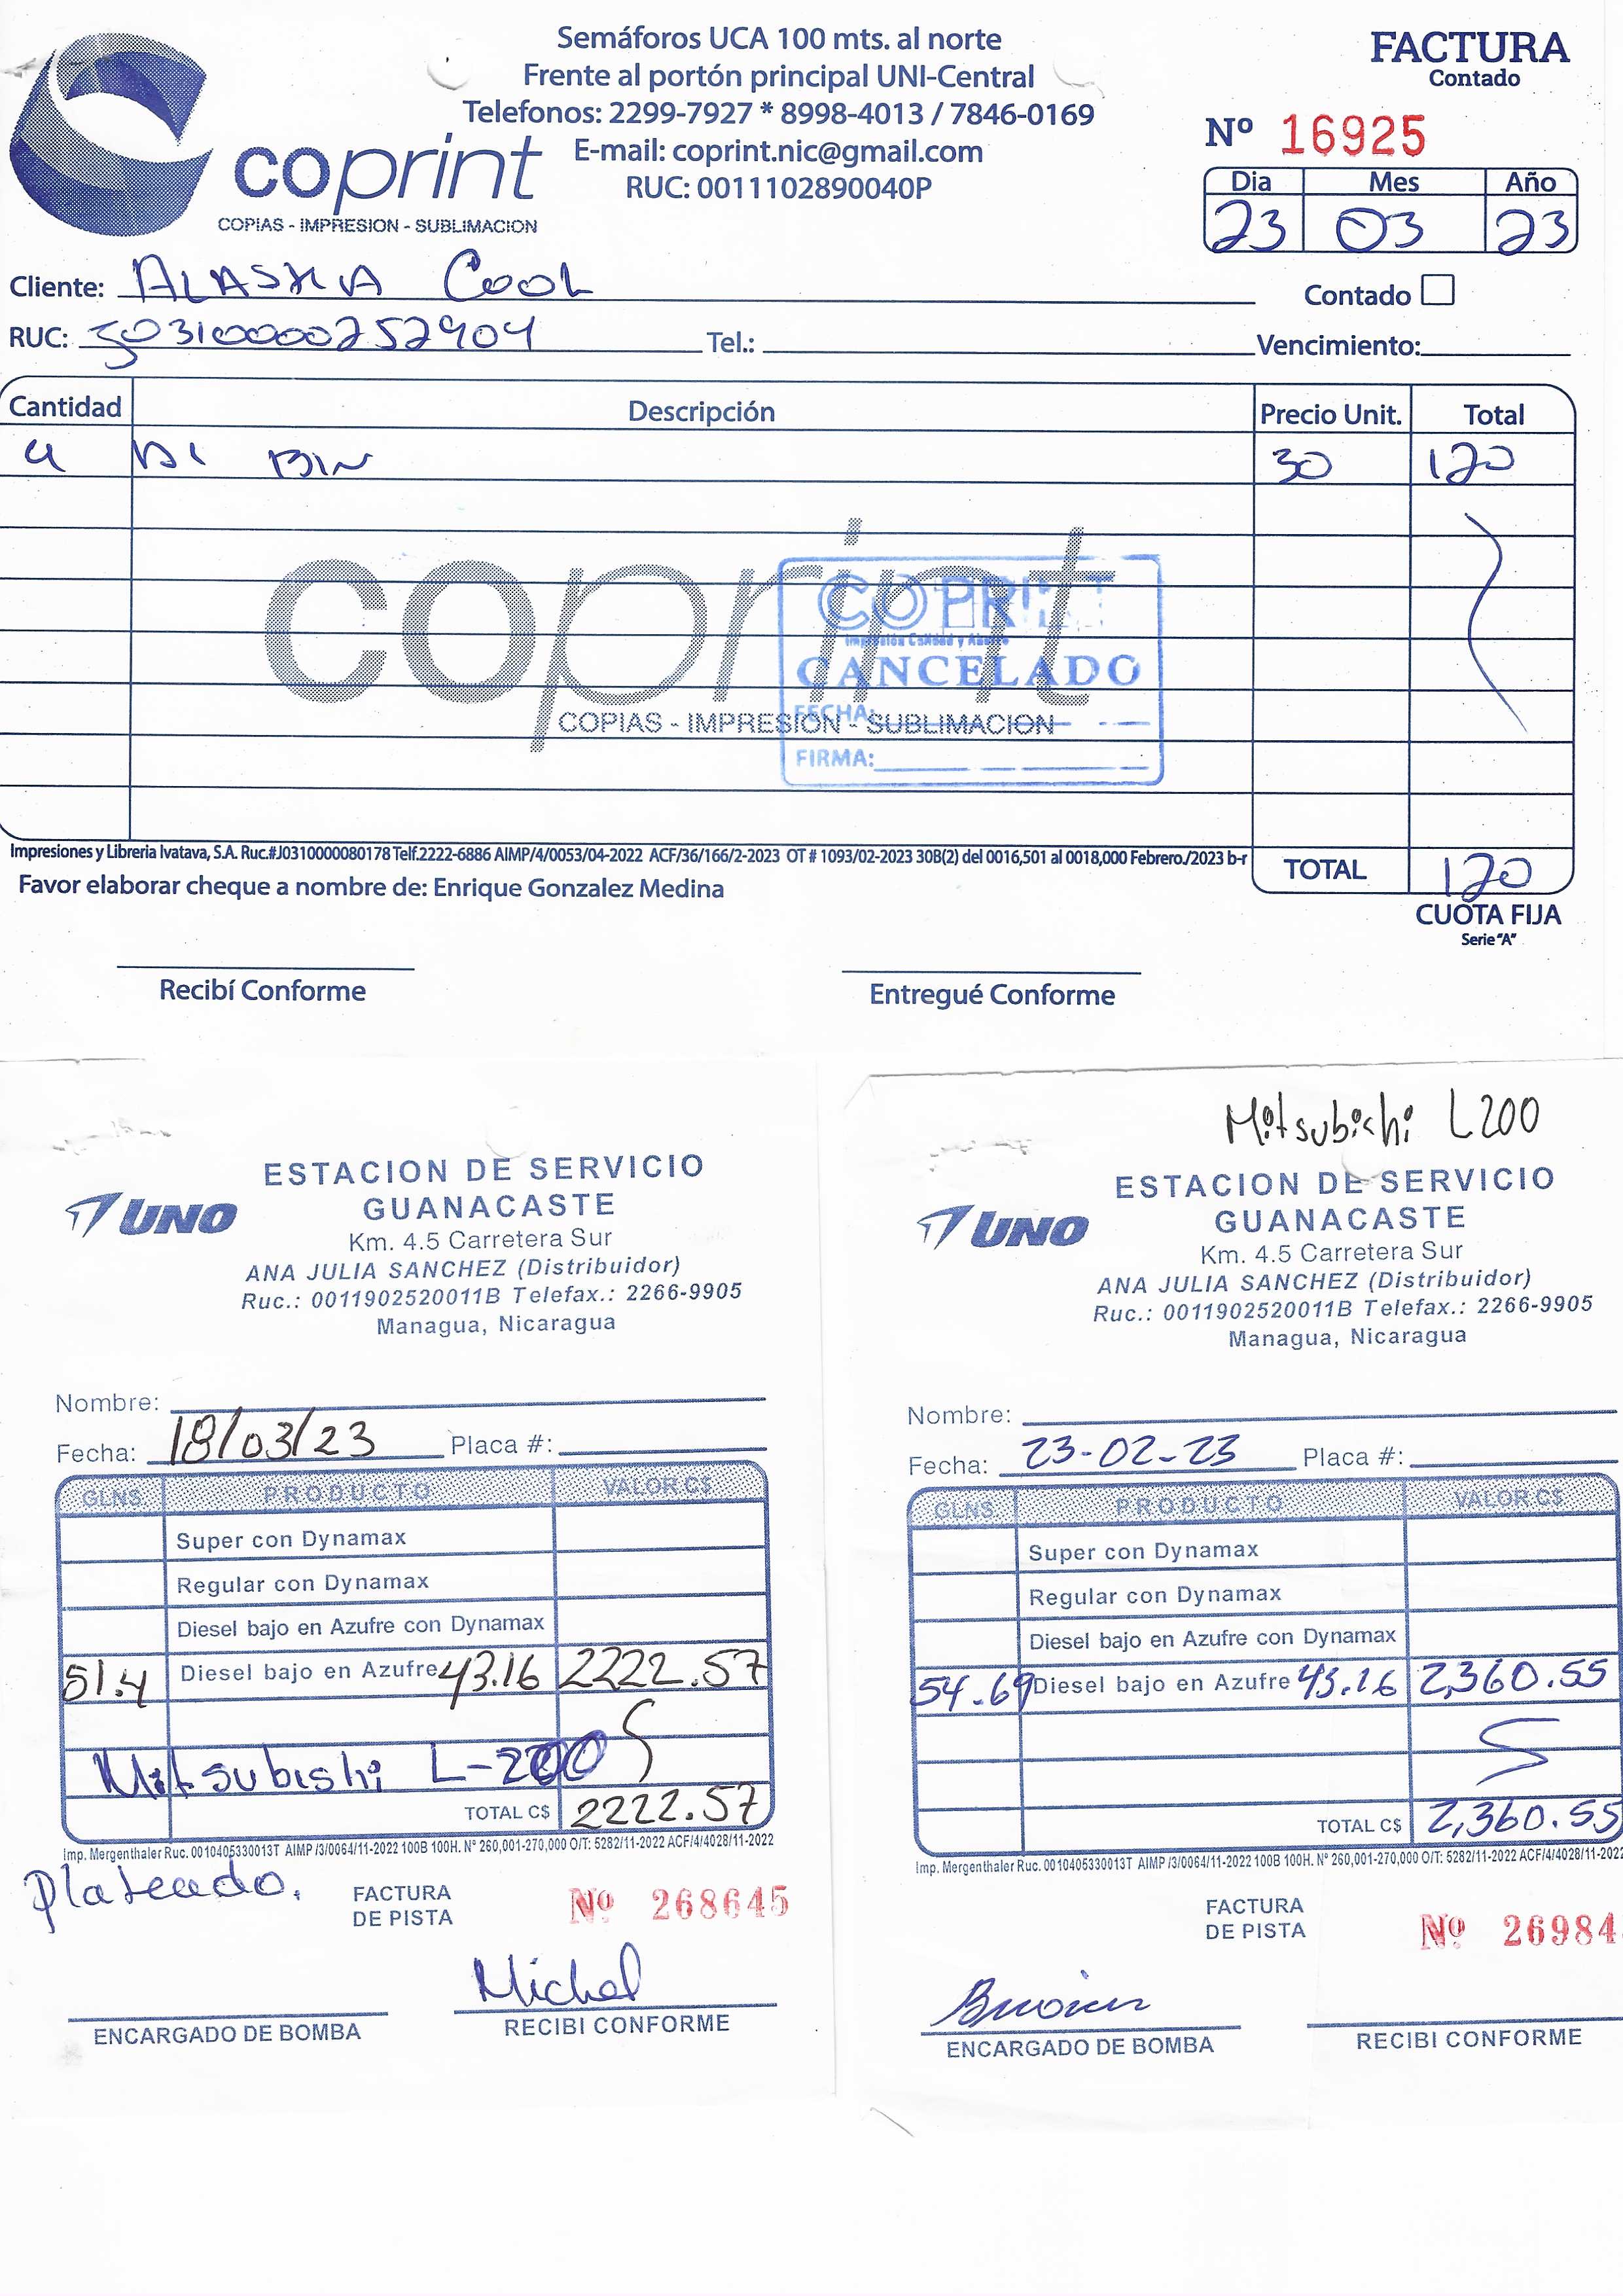 Semáforos UCA 100 mts. al norte
Frente al portón principal UNI-Central
Telefonos: 2299-7927 * 8998-4013 / 7846-0169
E-mail: coprint.nic@gmail.com
RUC: 0011102890040P
coprint
COPIAS - IMPRESION - SUBLIMACION
FACTURA
Contado
Nº 16925
Dia Mes Año
23 03 23
Cliente: ALASKA COOL
Contado
RUC: J0310000252904 Tel.: Vencimiento:
Cantidad Descripción Precio Unit. Total
4 BIN 30 120
coprint
COPIAS - IMPRESIÓN - SUBLIMACION
COPRINT
Impresión Calidad y
CANCELADO
FECHA:
FIRMA:
Impresiones y Libreria Ivatava, S.A. Ruc.#J0310000080178 Telf.2222-6886 AIMP/4/0053/04-2022 ACF/36/166/2-2023 OT # 1093/02-2023 30B(2) del 0016,501 al 0018,000 Febrero./2023 b-r
TOTAL 120
Favor elaborar cheque a nombre de: Enrique Gonzalez Medina
CUOTA FIJA
Serie "A"
Recibí Conforme Entregué Conforme
UNO
ESTACION DE SERVICIO
GUANACASTE
Km. 4.5 Carretera Sur
ANA JULIA SANCHEZ (Distribuidor)
Ruc.: 0011902520011B Telefax.: 2266-9905
Managua, Nicaragua
Nombre:
Fecha: 18/03/23 Placa #:
GLNS PRODUCTO VALOR C$
Super con Dynamax
Regular con Dynamax
Diesel bajo en Azufre con Dynamax
51.4 Diesel bajo en Azufre 43.16 2222.57
Mitsubishi L-200
TOTAL C$ 2222.57
Imp. Mergenthaler Ruc. 0010405330013T AIMP /3/0064/11-2022 100B 100H. N° 260,001-270,000 O/T: 5282/11-2022 ACF/4/4028/11-2022
Plateado.
FACTURA
DE PISTA
Nº 268645
Michel
ENCARGADO DE BOMBA RECIBI CONFORME
Mitsubichi L200
UNO
ESTACION DE SERVICIO
GUANACASTE
Km. 4.5 Carretera Sur
ANA JULIA SANCHEZ (Distribuidor)
Ruc.: 0011902520011B Telefax.: 2266-9905
Managua, Nicaragua
Nombre:
Fecha: 23-02-23 Placa #:
GLNS PRODUCTO VALOR C$
Super con Dynamax
Regular con Dynamax
Diesel bajo en Azufre con Dynamax
54.69 Diesel bajo en Azufre 43.16 2,360.55
TOTAL C$ 2,360.55
Imp. Mergenthaler Ruc. 0010405330013T AIMP /3/0064/11-2022 100B 100H. N° 260,001-270,000 O/T: 5282/11-2022 ACF/4/4028/11-2022
FACTURA
DE PISTA
Nº 26984
ENCARGADO DE BOMBA RECIBI CONFORME